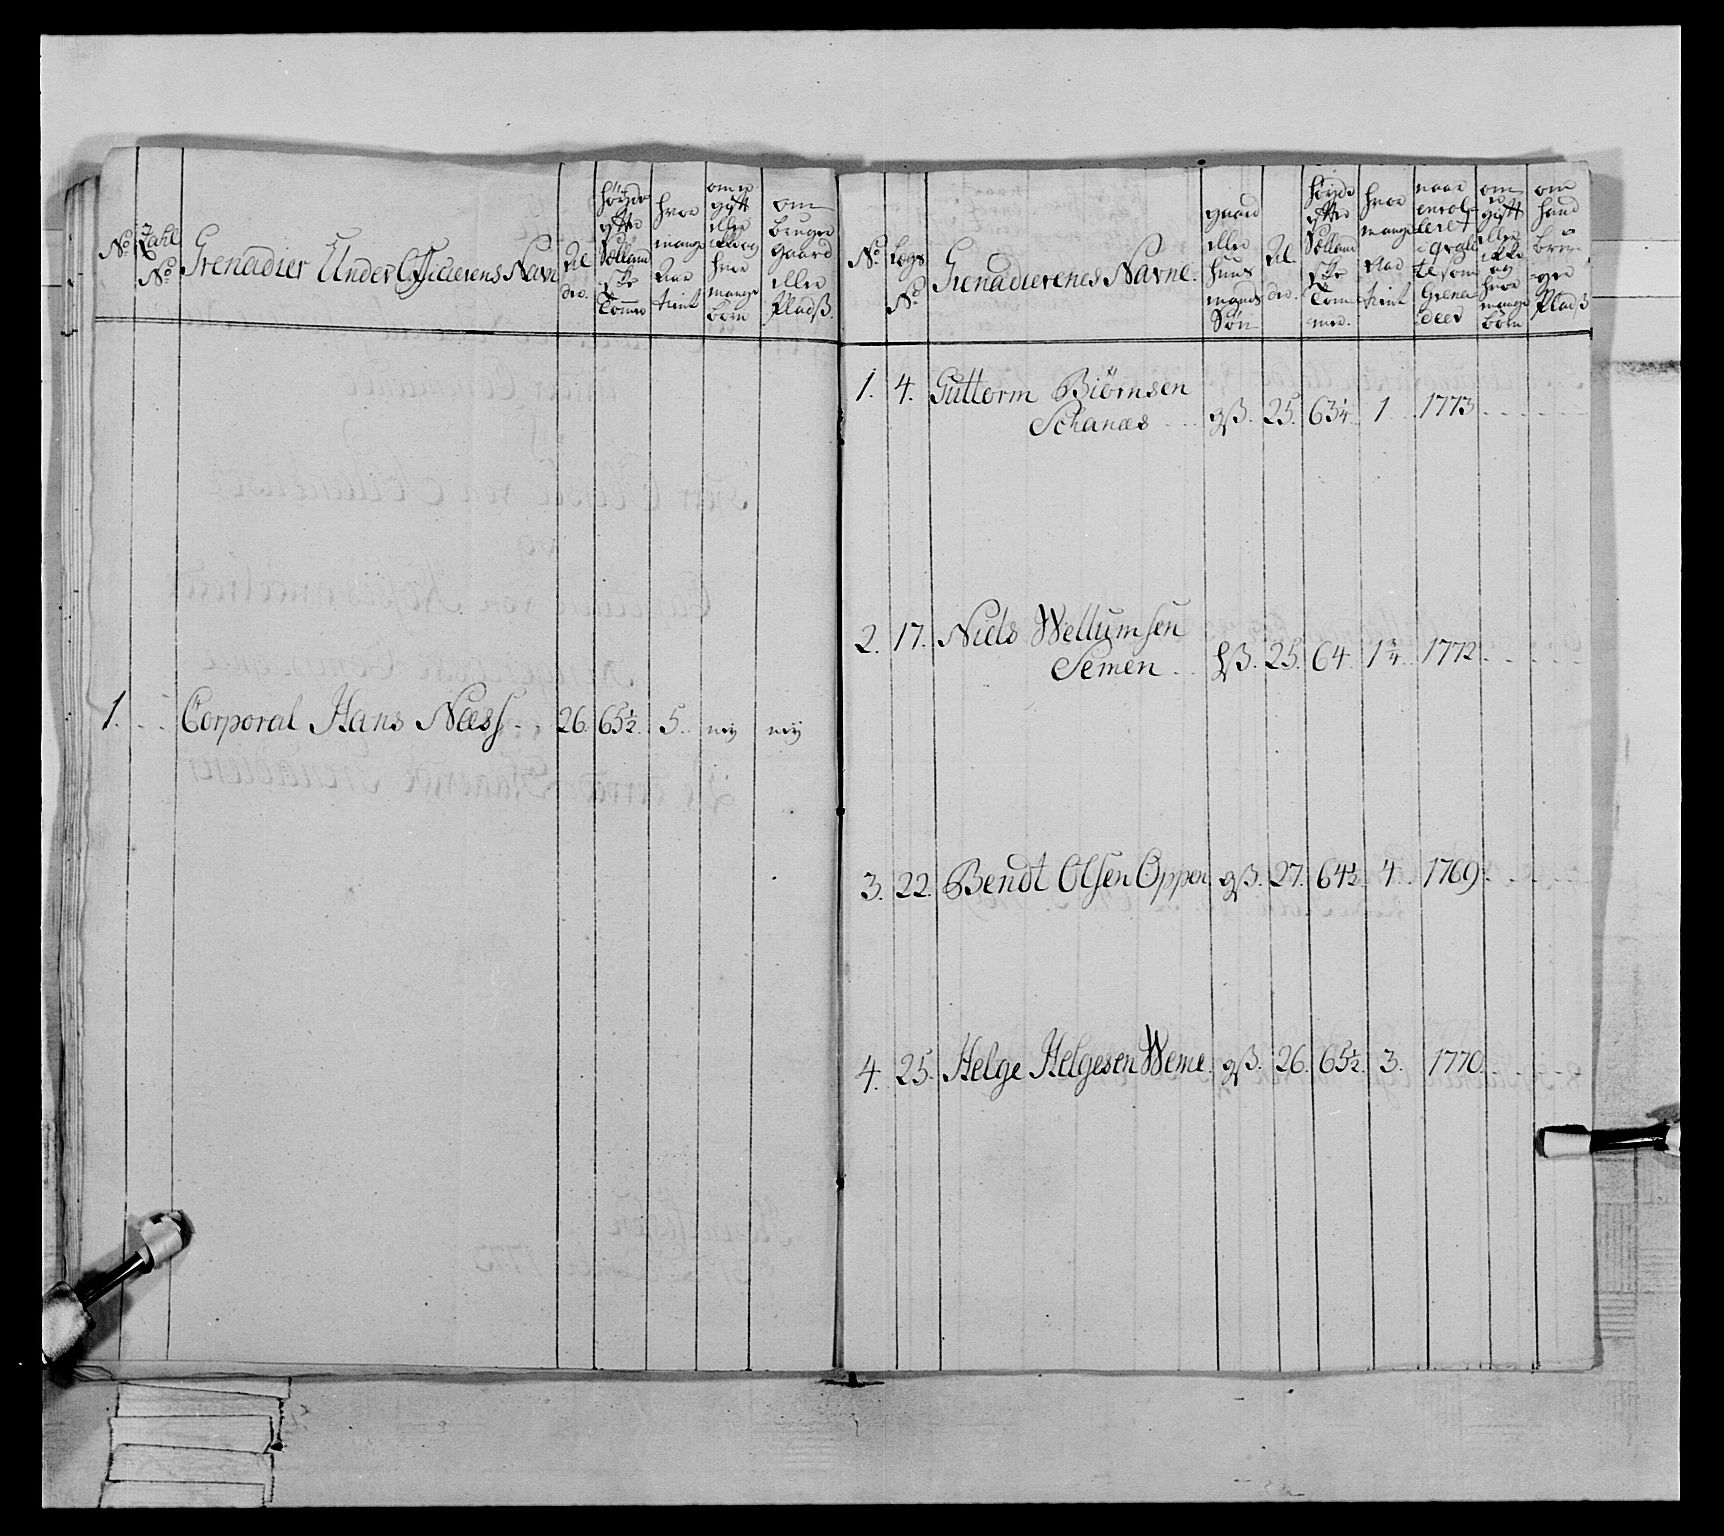 No
Zahl
No
Grenadier Under Officierens Navn
Al
der.
høyde
efter
Sælland
ske
Tomme
hvor
mange
Aar
tient
om er
gift
eller
ikke og
hvor
mange
børn
om
bruger
gaard
eller
Pladß.
1. Corporal Hans Næss 26. 65½. 5. ney ney
No
Lægs
No
Grenadierenes Navne.
gaard
eller
huus
mands
Søn
Al.
der.
høyde
efter
Sælland
ske
Tom-
mer.
hvor
mange
Aar
tient
naar
enrol-
leret
som
Grena
deer
om
gift
eller
ikke
og
hvor
mange
børn
om
hand
bru-
ger
Pladß
1. 4. Guttorm Biörnsen
Schanæs gß. 25. 63¼. 1. 1773
2. 17. Niels Wellumsen
Semen hß. 25. 64. 1¾. 1772
3. 22. Bendt Olsen Oppen gß. 27. 64½. 4. 1769.
4. 25. Helge Helgesen Weme. gß. 26. 65½. 3. 1770.